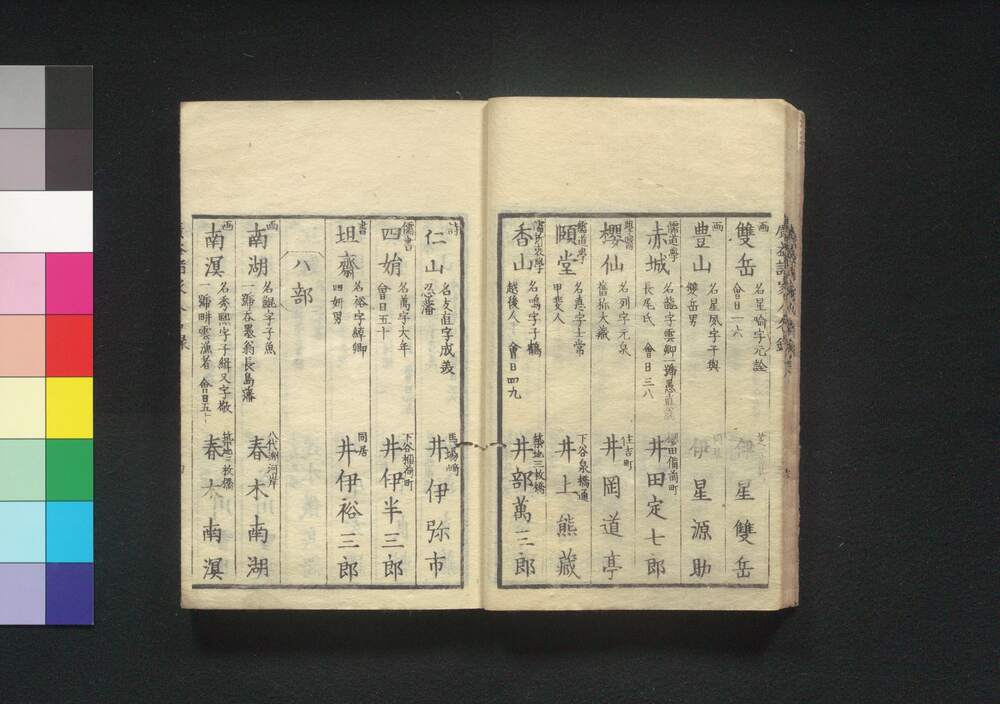 画
雙岳
名星喻字元詮
會日一六
伊星雙岳
画
豊山
名星風字干與
雙岳男
伊星源助
儒道學
赤城
名臨字雲卿一號
長尾氏 會日三八
櫻田備前町
井田定七郎
櫻仙
名列字元泉
住吉町
井岡道亭
頤堂
名惪字士常
甲斐人
下谷泉橋通
井上熊藏
香山
名鳴字子鶴
越後人 會日四九
築地三枚橋
井部萬三郎
詩
仁山
名友直字成義
忍藩
馬場崎
井伊弥市
儒書
四娋
名萬字大年
會日五十
下谷稲荷町
井伊半三郎
書
坦齋
名裕字綽卿
四娋男
同居
井伊裕三郎
ハ部
画
南湖
名鯤字子魚
一號吞墨翁長島藩
八代洲河岸
春木南湖
画
南溟
名秀熙字子緝又字敬
一號畊雲漁者 會日五十
築地三枚橋
春木南溟